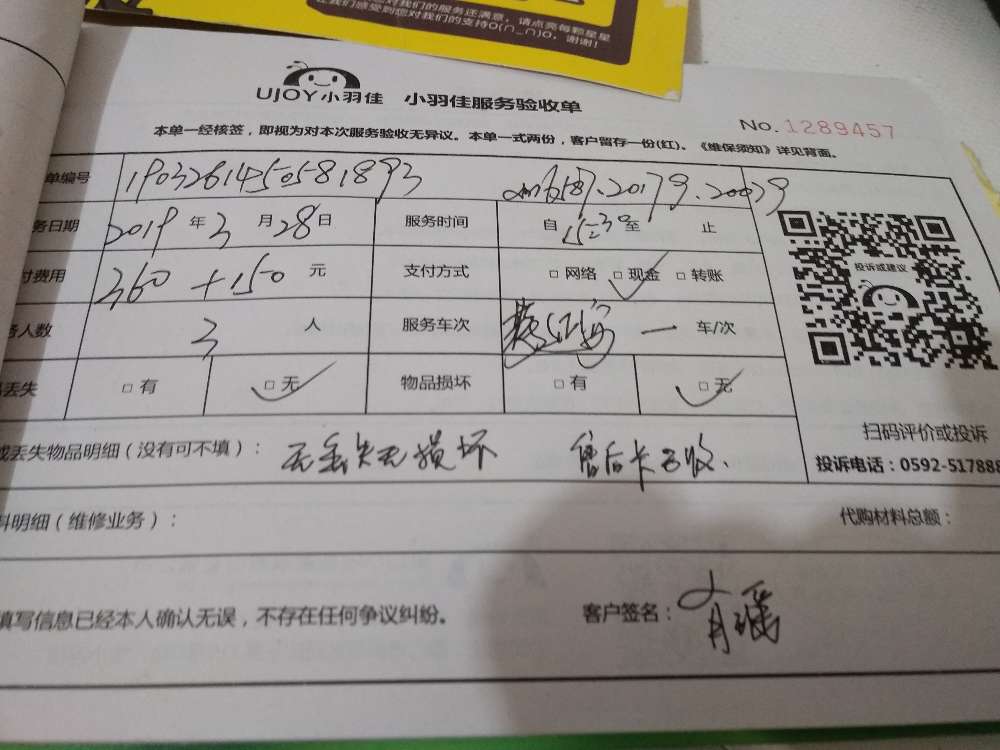 对我们的服务还满意，请点亮每颗星星
让我们感受到您对我们的支持O(∩_∩)O，谢谢！
UJOY小羽佳 小羽佳服务验收单
No. 1289457
本单一经核签，即视为对本次服务验收无异议。本单一式两份，客户留存一份(红)。《维保须知》详见背面。
单编号 1903261450581893
务日期 2019年3月28日 服务时间 自15:30至 止
付费用 360+150元 支付方式 □网络 □现金 □转账
务人数 3人 服务车次 一 车/次
丢失 □有 □无 物品损坏 □有 □无
投诉或建议
扫码评价或投诉
投诉电话：0592-517888
或丢失物品明细（没有可不填）： 无丢失无损坏 售后卡已收、
料明细（维修业务）： 代购材料总额：
填写信息已经本人确认无误，不存在任何争议纠纷。 客户签名：